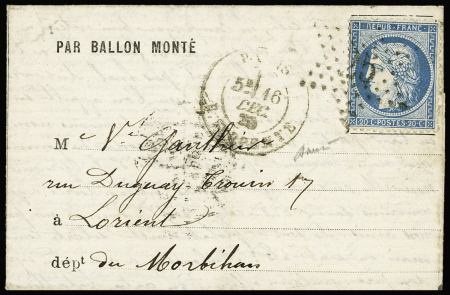 REPUB. FRANC.
PAR BALLON MONTÉ
5
20 C. POSTES 20 C.
PARIS
5E 16
DEC.
Me Ve Gauthier
rue Duguay-Trouin 17
à Lorient
dépt du Morbihan